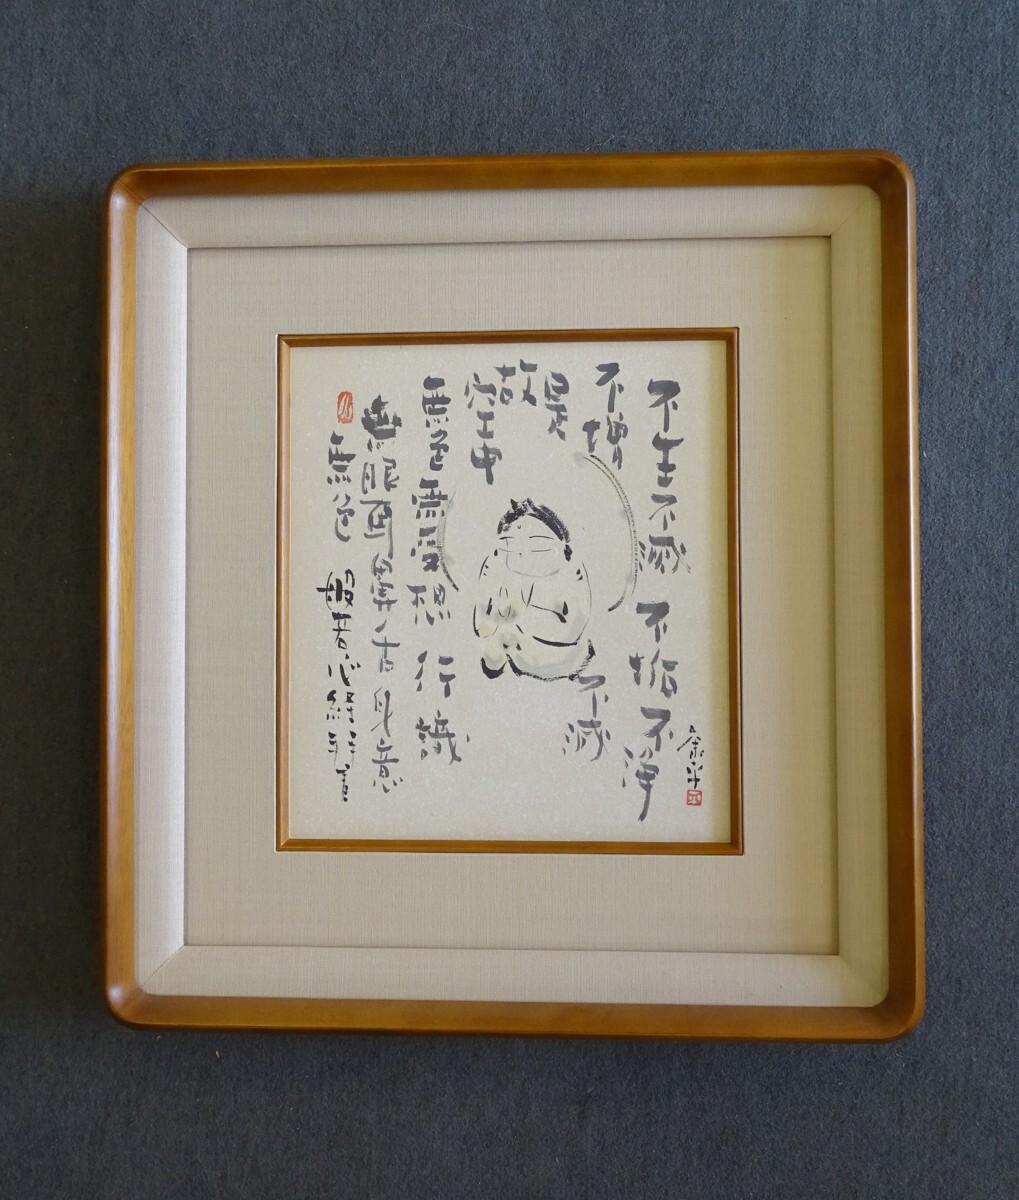 不生不滅 不垢不浄
不増 不減
是
故
空中
無色無受想 行識
無眼耳鼻舌身意
無色
般若心経